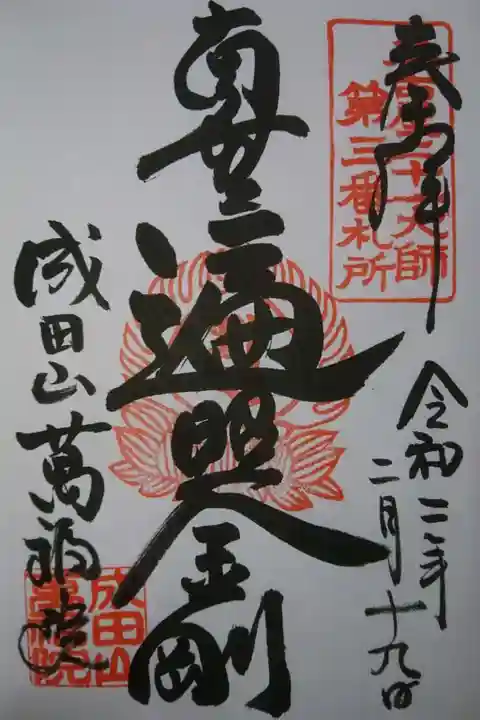 奉拝
名古屋二十一大師
第三番札所
令和二年
二月十九日
南無遍照金剛
成田山萬福院
成田山
萬福院